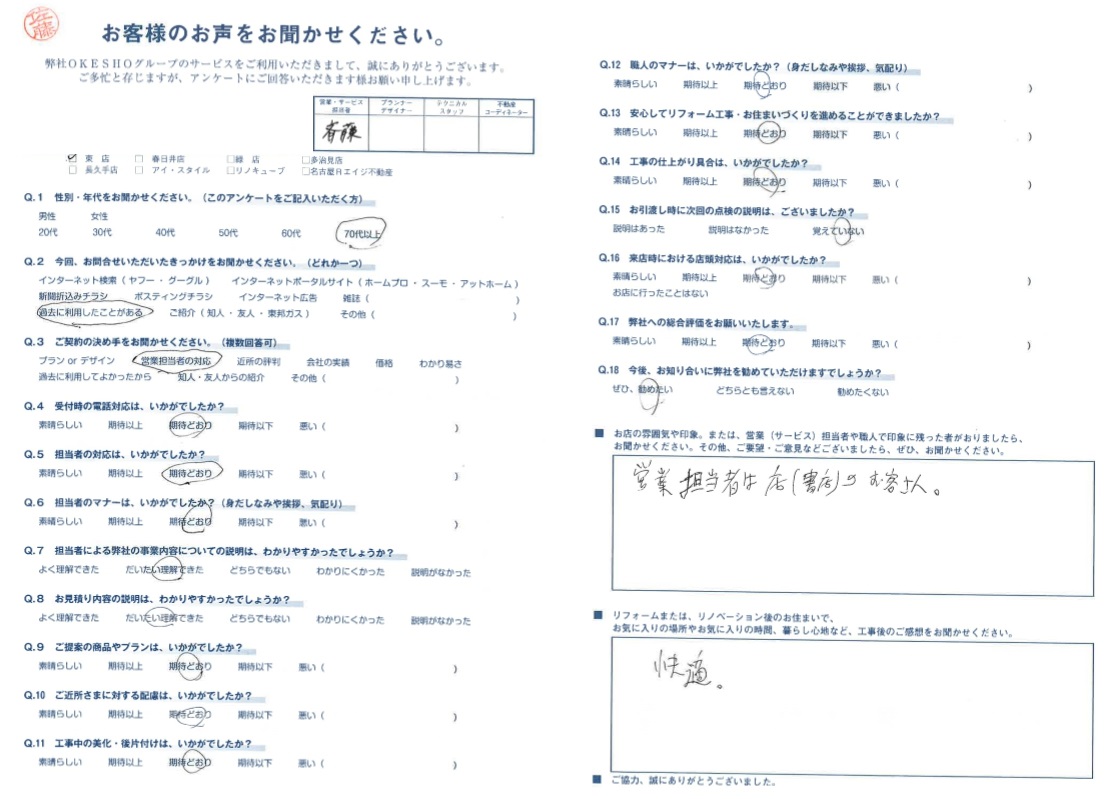 佐藤
お客様のお声をお聞かせください。
弊社OKESHOグループのサービスをご利用いただきまして、誠にありがとうございます。
ご多忙と存じますが、アンケートにご回答いただきます様お願い申し上げます。
営業・サービス担当者 プランナーデザイナー テクニカルスタッフ 不動産コーディネーター
斉藤
☑ 東 店 □ 春日井店 □緑 店 □多治見店
□ 長久手店 □ アイ・スタイル □リノキューブ □名古屋日エイジ不動産
Q.1 性別・年代をお聞かせください。（このアンケートをご記入いただく方）
男性 女性
20代 30代 40代 50代 60代 70代以上
Q.2 今回、お問合せいただいたきっかけをお聞かせください。（どれか一つ）
インターネット検索（ ヤフー ・ グーグル ） インターネットポータルサイト（ ホームプロ ・ スーモ ・ アットホーム ）
新聞折込みチラシ ポスティングチラシ インターネット広告 雑誌（ ）
過去に利用したことがある ご紹介（ 知人 ・ 友人 ・ 東邦ガス ） その他（ ）
Q.3 ご契約の決め手をお聞かせください。（複数回答可）
プラン or デザイン 営業担当者の対応 近所の評判 会社の実績 価格 わかり易さ
過去に利用してよかったから 知人・友人からの紹介 その他（ ）
Q.4 受付時の電話対応は、いかがでしたか？
素晴らしい 期待以上 期待どおり 期待以下 悪い（ ）
Q.5 担当者の対応は、いかがでしたか？
素晴らしい 期待以上 期待どおり 期待以下 悪い（ ）
Q.6 担当者のマナーは、いかがでしたか？（身だしなみや挨拶、気配り）
素晴らしい 期待以上 期待どおり 期待以下 悪い（ ）
Q.7 担当者による弊社の事業内容についての説明は、わかりやすかったでしょうか？
よく理解できた だいたい理解できた どちらでもない わかりにくかった 説明がなかった
Q.8 お見積り内容の説明は、わかりやすかったでしょうか？
よく理解できた だいたい理解できた どちらでもない わかりにくかった 説明がなかった
Q.9 ご提案の商品やプランは、いかがでしたか？
素晴らしい 期待以上 期待どおり 期待以下 悪い（ ）
Q.10 ご近所さまに対する配慮は、いかがでしたか？
素晴らしい 期待以上 期待どおり 期待以下 悪い（ ）
Q.11 工事中の美化・後片付けは、いかがでしたか？
素晴らしい 期待以上 期待どおり 期待以下 悪い（ ）
Q.12 職人のマナーは、いかがでしたか？（身だしなみや挨拶、気配り）
素晴らしい 期待以上 期待どおり 期待以下 悪い（ ）
Q.13 安心してリフォーム工事・お住まいづくりを進めることができましたか？
素晴らしい 期待以上 期待どおり 期待以下 悪い（ ）
Q.14 工事の仕上がり具合は、いかがでしたか？
素晴らしい 期待以上 期待どおり 期待以下 悪い（ ）
Q.15 お引渡し時に次回の点検の説明は、ございましたか？
説明はあった 説明はなかった 覚えていない
Q.16 来店時における店頭対応は、いかがでしたか？
素晴らしい 期待以上 期待どおり 期待以下 悪い（ ）
お店に行ったことはない
Q.17 弊社への総合評価をお願いいたします。
素晴らしい 期待以上 期待どおり 期待以下 悪い（ ）
Q.18 今後、お知り合いに弊社を勧めていただけますでしょうか？
ぜひ、勧めたい どちらとも言えない 勧めたくない
■ お店の雰囲気や印象。または、営業（サービス）担当者や職人で印象に残った者がおりましたら、
お聞かせください。その他、ご要望・ご意見などございましたら、ぜひ、お聞かせください。
営業担当者は店(書店)のお客さん。
■ リフォームまたは、リノベーション後のお住まいで、
お気に入りの場所やお気に入りの時間、暮らし心地など、工事後のご感想をお聞かせください。
快適。
■ ご協力、誠にありがとうございました。